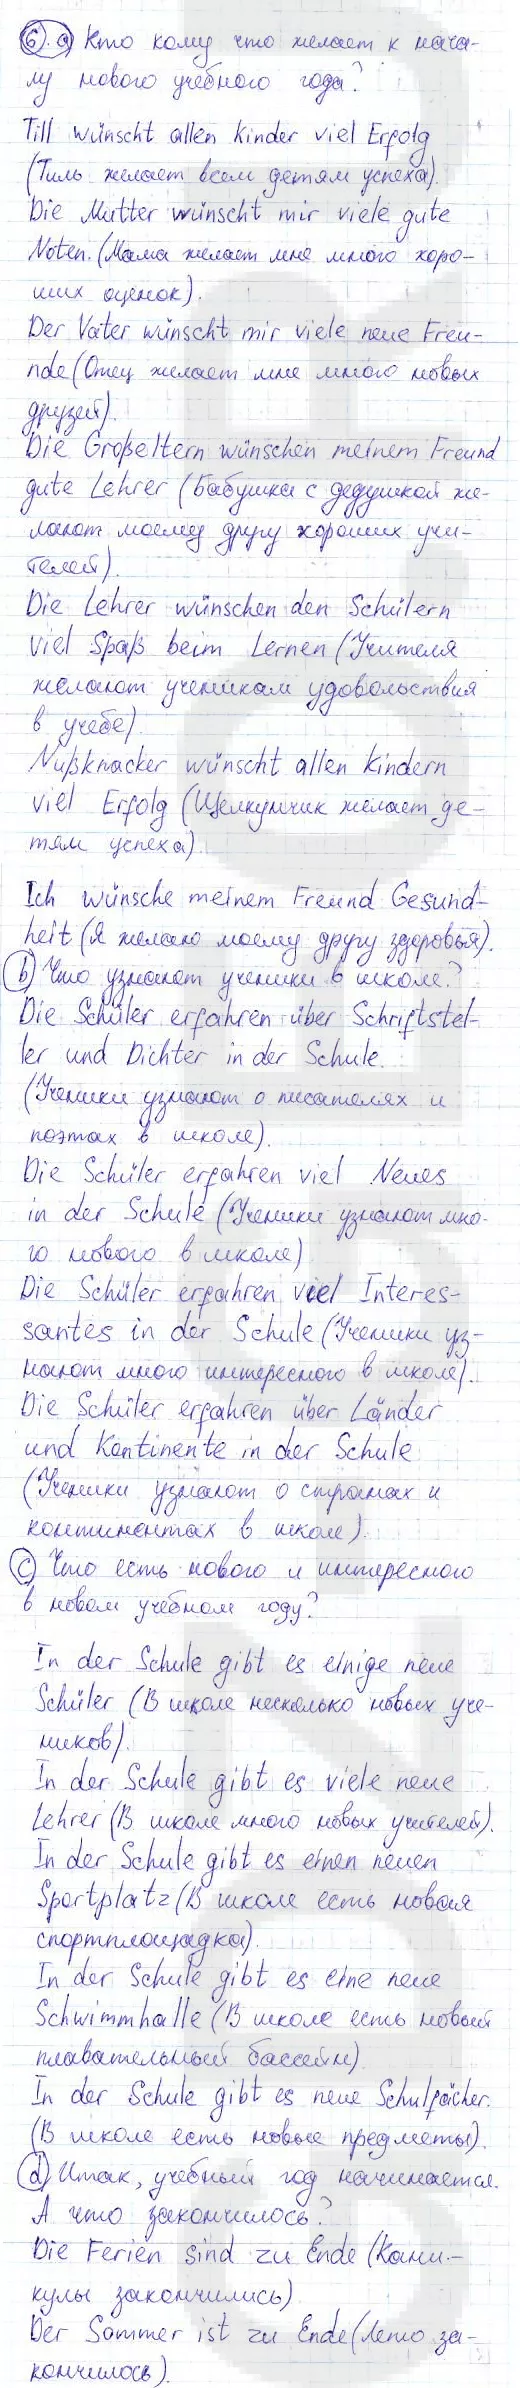 6. a) Кто кому что желает к нача-
лу нового учебного года?
Till wünscht allen kinder viel Erfolg
(Тиль желает всем детям успеха).
Die Mutter wünscht mir viele gute
Noten. (Мама желает мне много хоро-
ших оценок).
Der Vater wünscht mir viele neue Freu-
nde (Отец желает мне много новых
друзей).
Die Großeltern wünschen meinem Freund
gute Lehrer (Бабушка с дедушкой же-
лают моему другу хороших учи-
телей).
Die Lehrer wünschen den Schülern
viel Spaß beim Lernen (Учителя
желают ученикам удовольствия
в учебе).
Nußknacker wünscht allen Kindern
viel Erfolg (Щелкунчик желает де-
тям успеха).
Ich wünsche meinem Freund Gesund-
heit (Я желаю моему другу здоровья).
b) Что узнают ученики в школе?
Die Schüler erfahren über Schriftstel-
ler und Dichter in der Schule.
(Ученики узнают о писателях и
поэтах в школе).
Die Schüler erfahren viel Neues
in der Schule (Ученики узнают мно-
го нового в школе)
Die Schüler erfahren viel Interes-
santes in der Schule (Ученики уз-
нают много интересного в школе).
Die Schüler erfahren über Länder
und Kontinente in der Schule
(Ученики узнают о странах и
континентах в школе).
c) Что есть нового и интересного
в новом учебном году?
In der Schule gibt es einige neue
Schüler (В школе несколько новых уче-
ников).
In der Schule gibt es viele neue
Lehrer (В школе много новых учителей).
In der Schule gibt es einen neuen
Sportplatz (В школе есть новая
спортплощадка).
In der Schule gibt es eine neue
Schwimmhalle (В школе есть новый
плавательный бассейн)
In der Schule gibt es neue Schulfächer.
(В школе есть новые предметы).
d) Итак, учебный год начинается.
А что закончилось?
Die Ferien sind zu Ende (Кани-
кулы закончились)
Der Sommer ist zu Ende (Лето за-
кончилось).